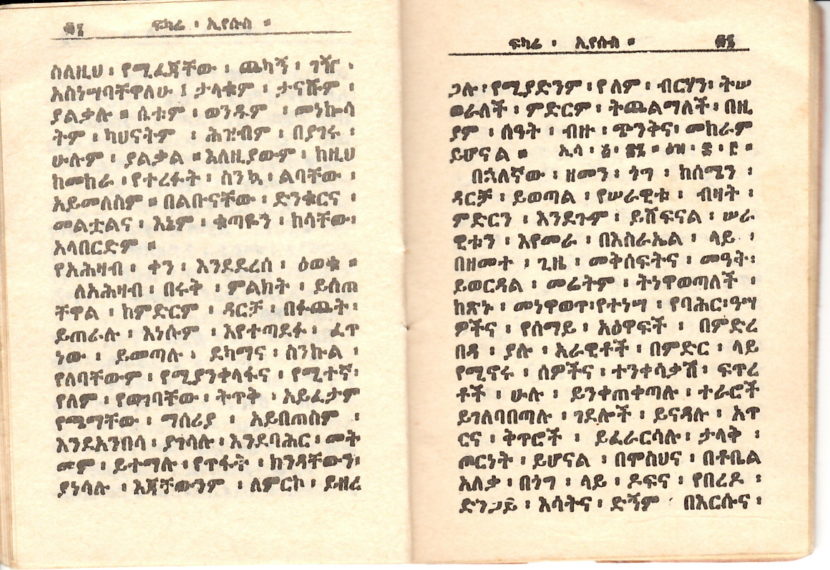 ፷፮ ፍካሬ ፡ ኢየሱስ ።
ስለዚህ ፡ የሚፈጃቸው ፡ ጨካኝ ፡ ገዥ ፡
አስነሣባቸዋለሁ ፤ ታላቁም ፡ ታናሹም ፡
ያልቃሉ ። ሴቱም ፡ ወንዱም ፡ መነኰሳ
ትም ፡ ካህናትም ፡ ሕዝብም ፡ በያገሩ ፡
ሁሉም ፡ ያልቃል ። እለዚያውም ፡ ከዚህ
ከመከራ ፡ የተረፉት ፡ ስንኳ ፡ ልባቸው ፡
አይመለስም ። በልቡናቸው ፡ ድንቁርና ፡
መልቷልና ፡ እኔም ፡ ቁጣዬን ፡ ከሳቸው፡
አላበርድም ።
የአሕዛብ ፡ ቀን ፡ እንደደረሰ ፡ ዕወቁ ።
ለአሕዛብ ፡ በሩቅ ፡ ምልክት ፡ ይሰጠ
ቸዋል ፡ ከምድርም ፡ ዳርቻ ፡ በፉጨት፡
ይጠራሉ ፡ እነሱም ፡ እየተጣደፉ ፡ ፈጥ
ነው ፡ ይመጣሉ ፡ ደካማና ፡ ስንኩል ፡
የለባቸውም ፡ የሚያንቀላፋና ፡ የሚተኛ፡
የለም ፡ የወገባቸው ፡ ትጥቅ ፡ አይፈታም
የጫማቸው ፡ ማሰሪያ ፡ አይበጠስም ፡
እንደአንበሳ ፡ ያገሳሉ ፡ እንደባሕር ፡ መት
መም ፡ ይተማሉ ፡ የጥፋት ፡ ክንዳቸውን፡
ያነሳሉ ፡ እጃቸውንም ፡ ለምርኮ ፡ ይዘረ
ፍካሬ ፡ ኢየሱስ ።
ጋሉ ፡ የሚያድንም ፡ የለም ፡ ብርሃን፡ ትሠ
ወራለች ፡ ምድርም ፡ ትጨልማለች ፡ በዚ
ያም ፡ ሰዓት ፡ ብዙ ፡ ጭንቅና፡ መከራም
ይሆናል ። ኢሳ ፡
በኋለኛው ፡ ዘመን ፡ ጎግ ፡ ከሰሜን ፡
ዳርቻ ፡ ይወጣል ፡ የሠራዊቱ ፡ ብዛት ፡
ምድርን ፡ እንደጉም ፡ ይሸፍናል ፡ ሠራ
ዊቱን ፡ እየመራ ፡ በእስራኤል ፡ ላይ ፡
በዘመተ ፡ ጊዜ ፡ መቅሰፍትና ፡ መዓት፡
ይወርዳል ፡ መሬትም ፡ ትነዋወጣለች ፡
ከጽኑ ፡ መነዋወጥ፡የተነሣ ፡ የባሕር፡ዓሣ
ዎችና ፡ የሰማይ ፡ አዕዋፍች ፡ በምድረ
በዳ ፡ ያሉ ፡ አራዊቶች ፡ በምድር ፡ ላይ
የሚኖሩ ፡ ሰዎችና ፡ ተንቀሳቃሽ ፡ ፍጥረ
ቶች ፡ ሁሉ ፡ ይንቀጠቀጣሉ ፡ ተራሮች
ይገለባበጣሉ ፡ ገደሎች ፡ ይናዳሉ ፡ አጥ
ርና ፡ ቅጥሮች ፡ ይፈራርሳሉ፡ ታላቅ ፡
ጦርነት ፡ ይሆናል ፡ በሞስህና ፡ በቶቤል
አለቃ ፡ በጎግ ፡ ላይ ፡ ዶፍና ፡ የበረዶ ፡
ድንጋይ ፡ እሳትና ፡ ድኝም በእርሱና ፡